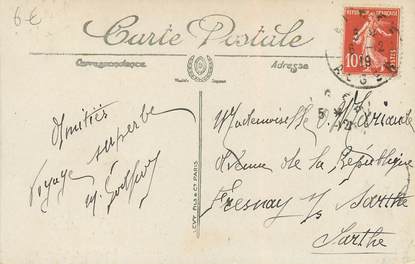 6 €
Carte Postale
Correspondance
Adresse
RÉPUBLIQUE FRANÇAISE
10c
ALGER
Amitiés
Voyage superbe
M.
Mademoiselle
Avenue de la République
Fresnay s/s Sarthe
Sarthe
LEVY FILS & Cie PARIS